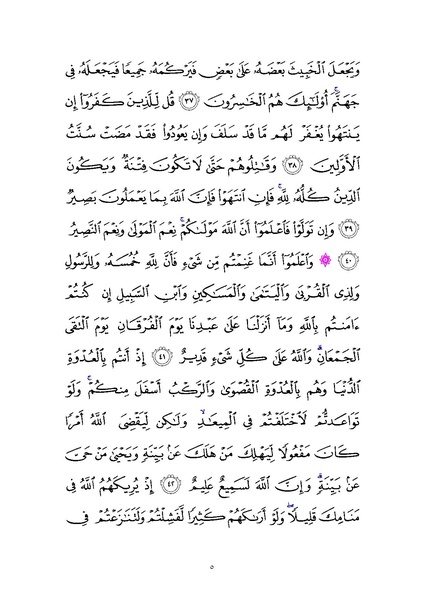 وَيَجْعَلَ ٱلْخَبِيثَ بَعْضَهُۥ عَلَىٰ بَعْضٍ فَيَرْكُمَهُۥ جَمِيعًا فَيَجْعَلَهُۥ فِى
جَهَنَّمَ ۚ أُو۟لَـٰٓئِكَ هُمُ ٱلْخَـٰسِرُونَ ٣٧ قُل لِّلَّذِينَ كَفَرُوٓا۟ إِن
يَنتَهُوا۟ يُغْفَرْ لَهُم مَّا قَدْ سَلَفَ وَإِن يَعُودُوا۟ فَقَدْ مَضَتْ سُنَّتُ
ٱلْأَوَّلِينَ ٣٨ وَقَـٰتِلُوهُمْ حَتَّىٰ لَا تَكُونَ فِتْنَةٌ وَيَكُونَ
ٱلدِّينُ كُلُّهُۥ لِلَّهِ ۚ فَإِنِ ٱنتَهَوْا۟ فَإِنَّ ٱللَّهَ بِمَا يَعْمَلُونَ بَصِيرٌ
٣٩ وَإِن تَوَلَّوْا۟ فَٱعْلَمُوٓا۟ أَنَّ ٱللَّهَ مَوْلَىٰكُمْ ۚ نِعْمَ ٱلْمَوْلَىٰ وَنِعْمَ ٱلنَّصِيرُ
٤٠ ۞ وَٱعْلَمُوٓا۟ أَنَّمَا غَنِمْتُم مِّن شَىْءٍ فَأَنَّ لِلَّهِ خُمُسَهُۥ وَلِلرَّسُولِ
وَلِذِى ٱلْقُرْبَىٰ وَٱلْيَتَـٰمَىٰ وَٱلْمَسَـٰكِينِ وَٱبْنِ ٱلسَّبِيلِ إِن كُنتُمْ
ءَامَنتُم بِٱللَّهِ وَمَآ أَنزَلْنَا عَلَىٰ عَبْدِنَا يَوْمَ ٱلْفُرْقَانِ يَوْمَ ٱلْتَقَى
ٱلْجَمْعَانِ ۗ وَٱللَّهُ عَلَىٰ كُلِّ شَىْءٍ قَدِيرٌ ٤١ إِذْ أَنتُم بِٱلْعُدْوَةِ
ٱلدُّنْيَا وَهُم بِٱلْعُدْوَةِ ٱلْقُصْوَىٰ وَٱلرَّكْبُ أَسْفَلَ مِنكُمْ ۚ وَلَوْ
تَوَاعَدتُّمْ لَٱخْتَلَفْتُمْ فِى ٱلْمِيعَـٰدِ ۙ وَلَـٰكِن لِّيَقْضِىَ ٱللَّهُ أَمْرًا
كَانَ مَفْعُولًا لِّيَهْلِكَ مَنْ هَلَكَ عَنۢ بَيِّنَةٍ وَيَحْيَىٰ مَنْ حَىَّ
عَنۢ بَيِّنَةٍ ۗ وَإِنَّ ٱللَّهَ لَسَمِيعٌ عَلِيمٌ ٤٢ إِذْ يُرِيكَهُمُ ٱللَّهُ فِى
مَنَامِكَ قَلِيلًا ۖ وَلَوْ أَرَىٰكَهُمْ كَثِيرًا لَّفَشِلْتُمْ وَلَتَنَـٰزَعْتُمْ فِى
٥